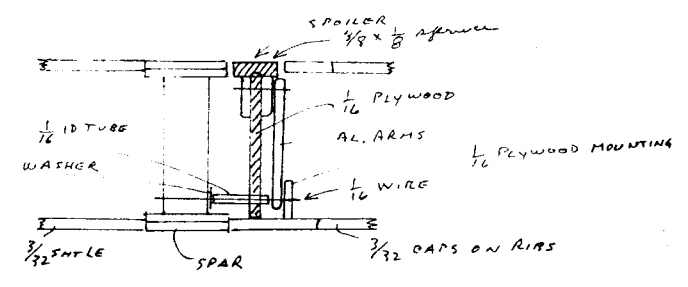 SPOILER
3/8 x 1/8 spruce
1/16 PLYWOOD
1/16 ID TUBE
AL. ARMS
WASHER
1/16 PLYWOOD MOUNTING
1/16 WIRE
3/32 SHTLE
SPAR
3/32 CAPS ON RIBS